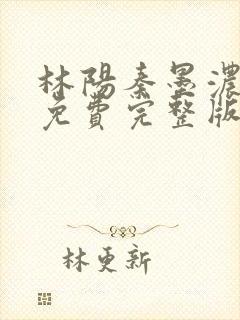 林陽秦墨濃
免費完整版
林更新